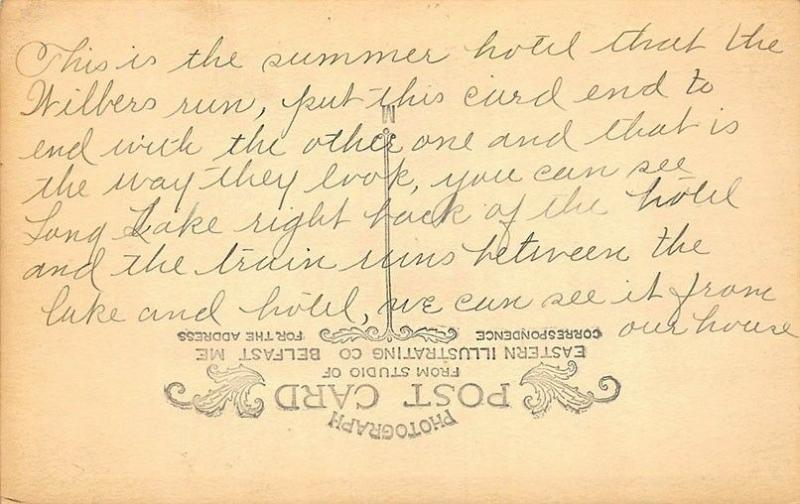 This is the summer hotel that the
Wilbers run, put this card end to
end with the other one and that is
the way they look, you can see
Long Lake right back of the hotel
and the train runs between the
lake and hotel, we can see it from
our house
PHOTOGRAPH
POST CARD
FROM STUDIO OF
EASTERN ILLUSTRATING CO BELFAST ME
CORRESPONDENCE
FOR THE ADDRESS
M